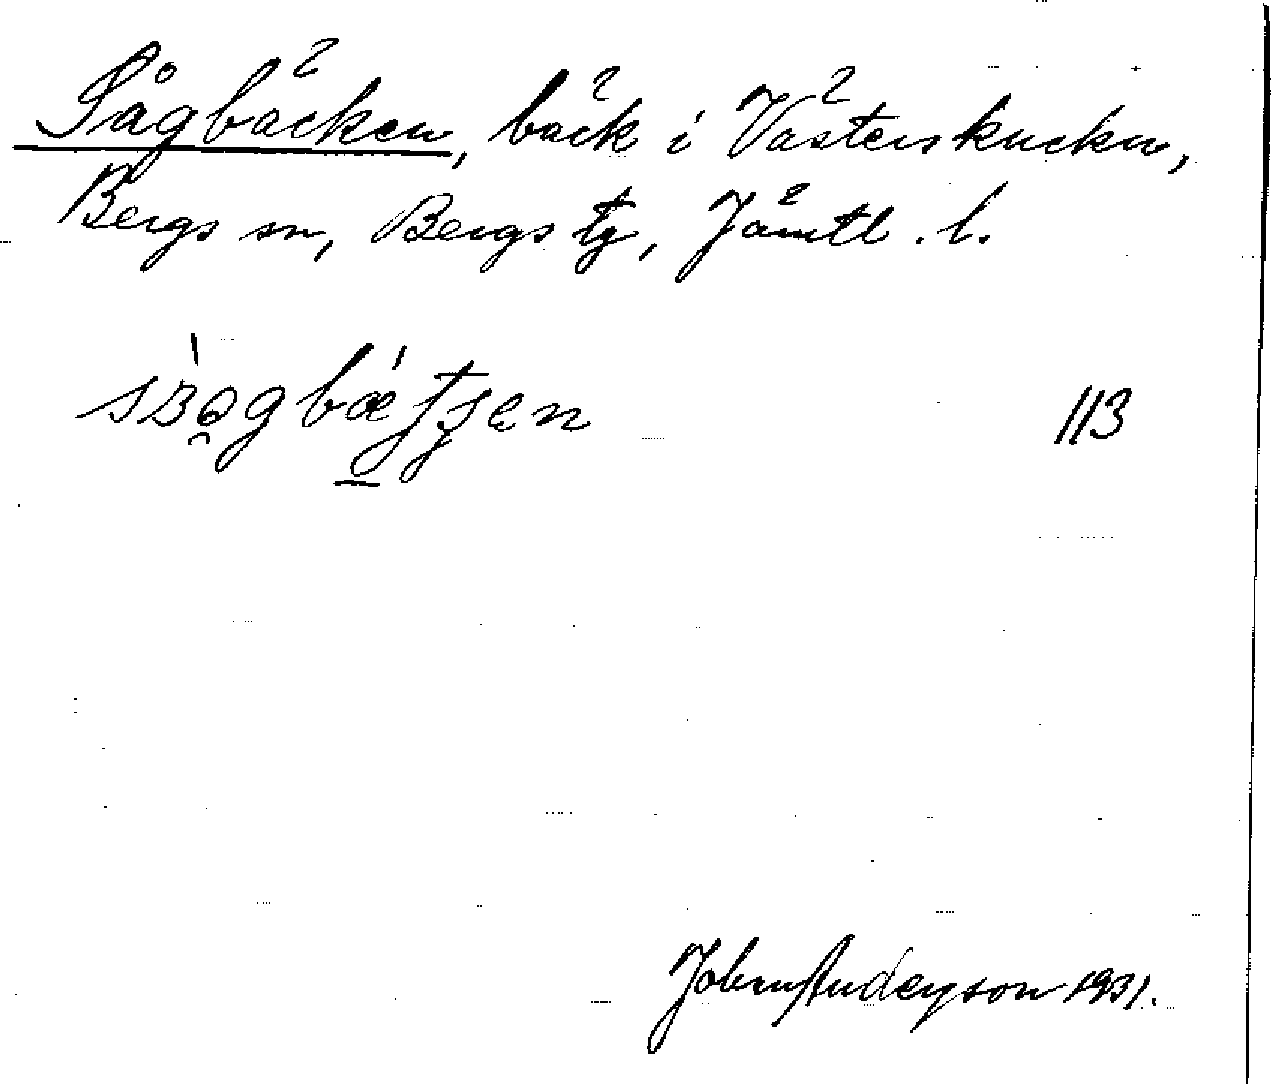 Sågbäcken, bäck i Västerskucku,
Bergs sn, Bergs tg, Jämtl. l.
113
John Anderson 1931.